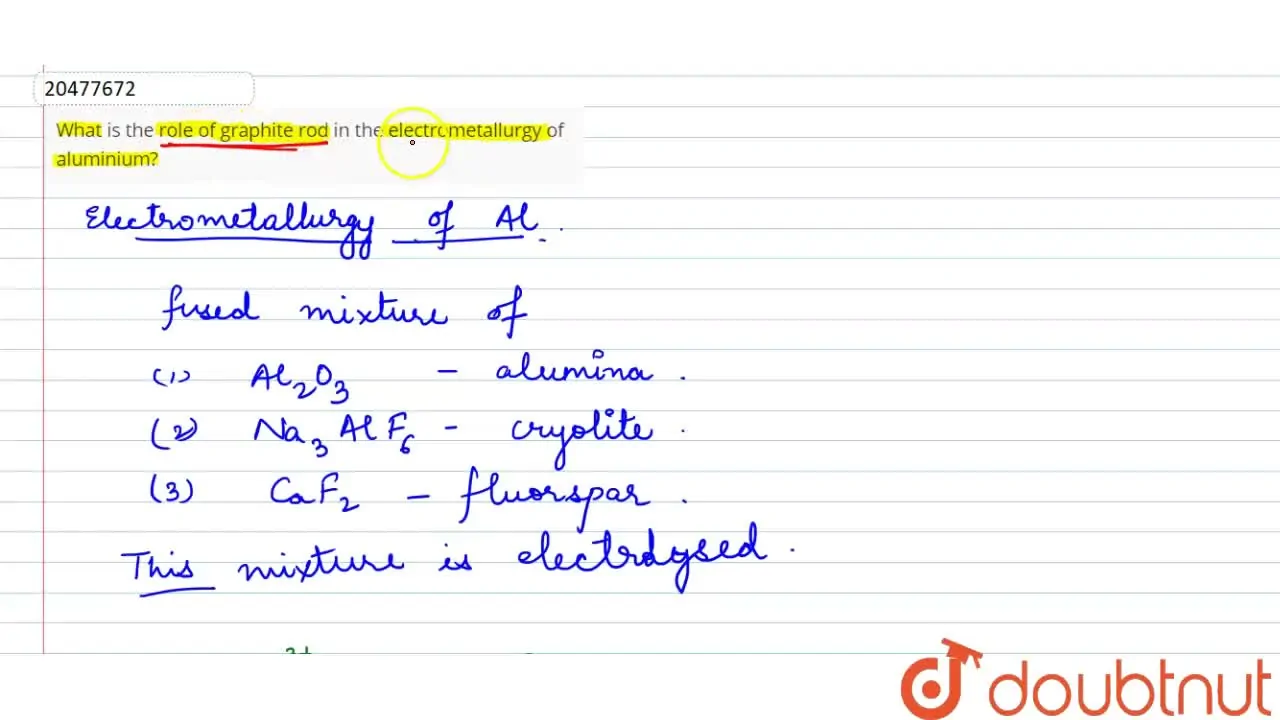 20477672
What is the role of graphite rod in the electrometallurgy of
aluminium?
Electrometallurgy of Al.
fused mixture of
(1) Al2O3 - alumina.
(2) Na3AlF6 - cryolite.
(3) CaF2 - fluorspar.
This mixture is electrolysed.
3+
doubtnut